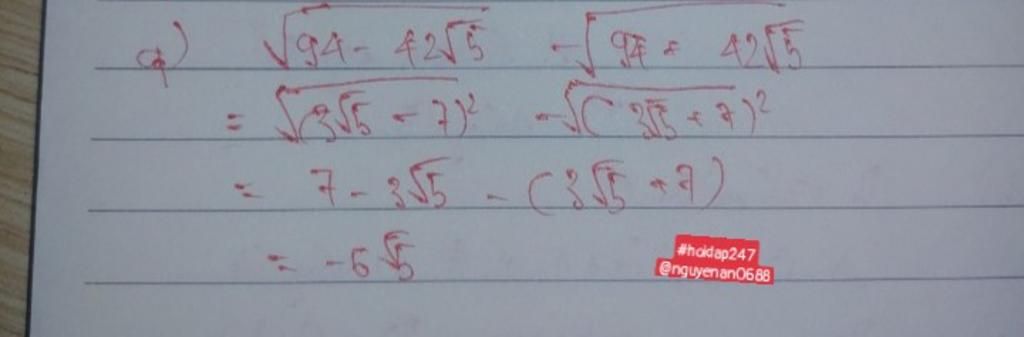 a) √(94 - 42√5) - √(94 + 42√5)
= √(3√5 - 7)² - √(3√5 + 7)²
= 7 - 3√5 - (3√5 + 7)
= -6√5
#hoidap247
@nguyenan0688